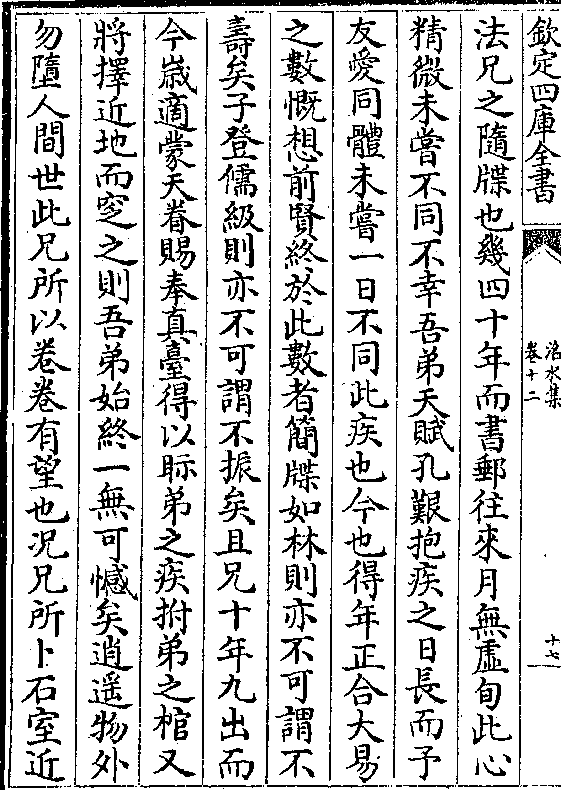 欽定四庫全書
洺水集
卷十二
十七
法兄之隨牒也幾四十年而書郵往來月無虛旬此心
精微未嘗不同不幸吾弟天賦孔艱抱疾之日長而予
友愛同體未嘗一日不同此疾也今也得年正合大易
之數慨想前賢終於此數者簡牒如林則亦不可謂不
壽矣子登儒級則亦不可謂不振矣且兄十年九出而
今嵗適蒙天眷賜奉真臺得以眎弟之疾拊弟之棺又
將擇近地而窆之則吾弟始終一無可憾矣逍遥物外
勿墮人間世此兄所以卷卷有望也况兄所卜石室近